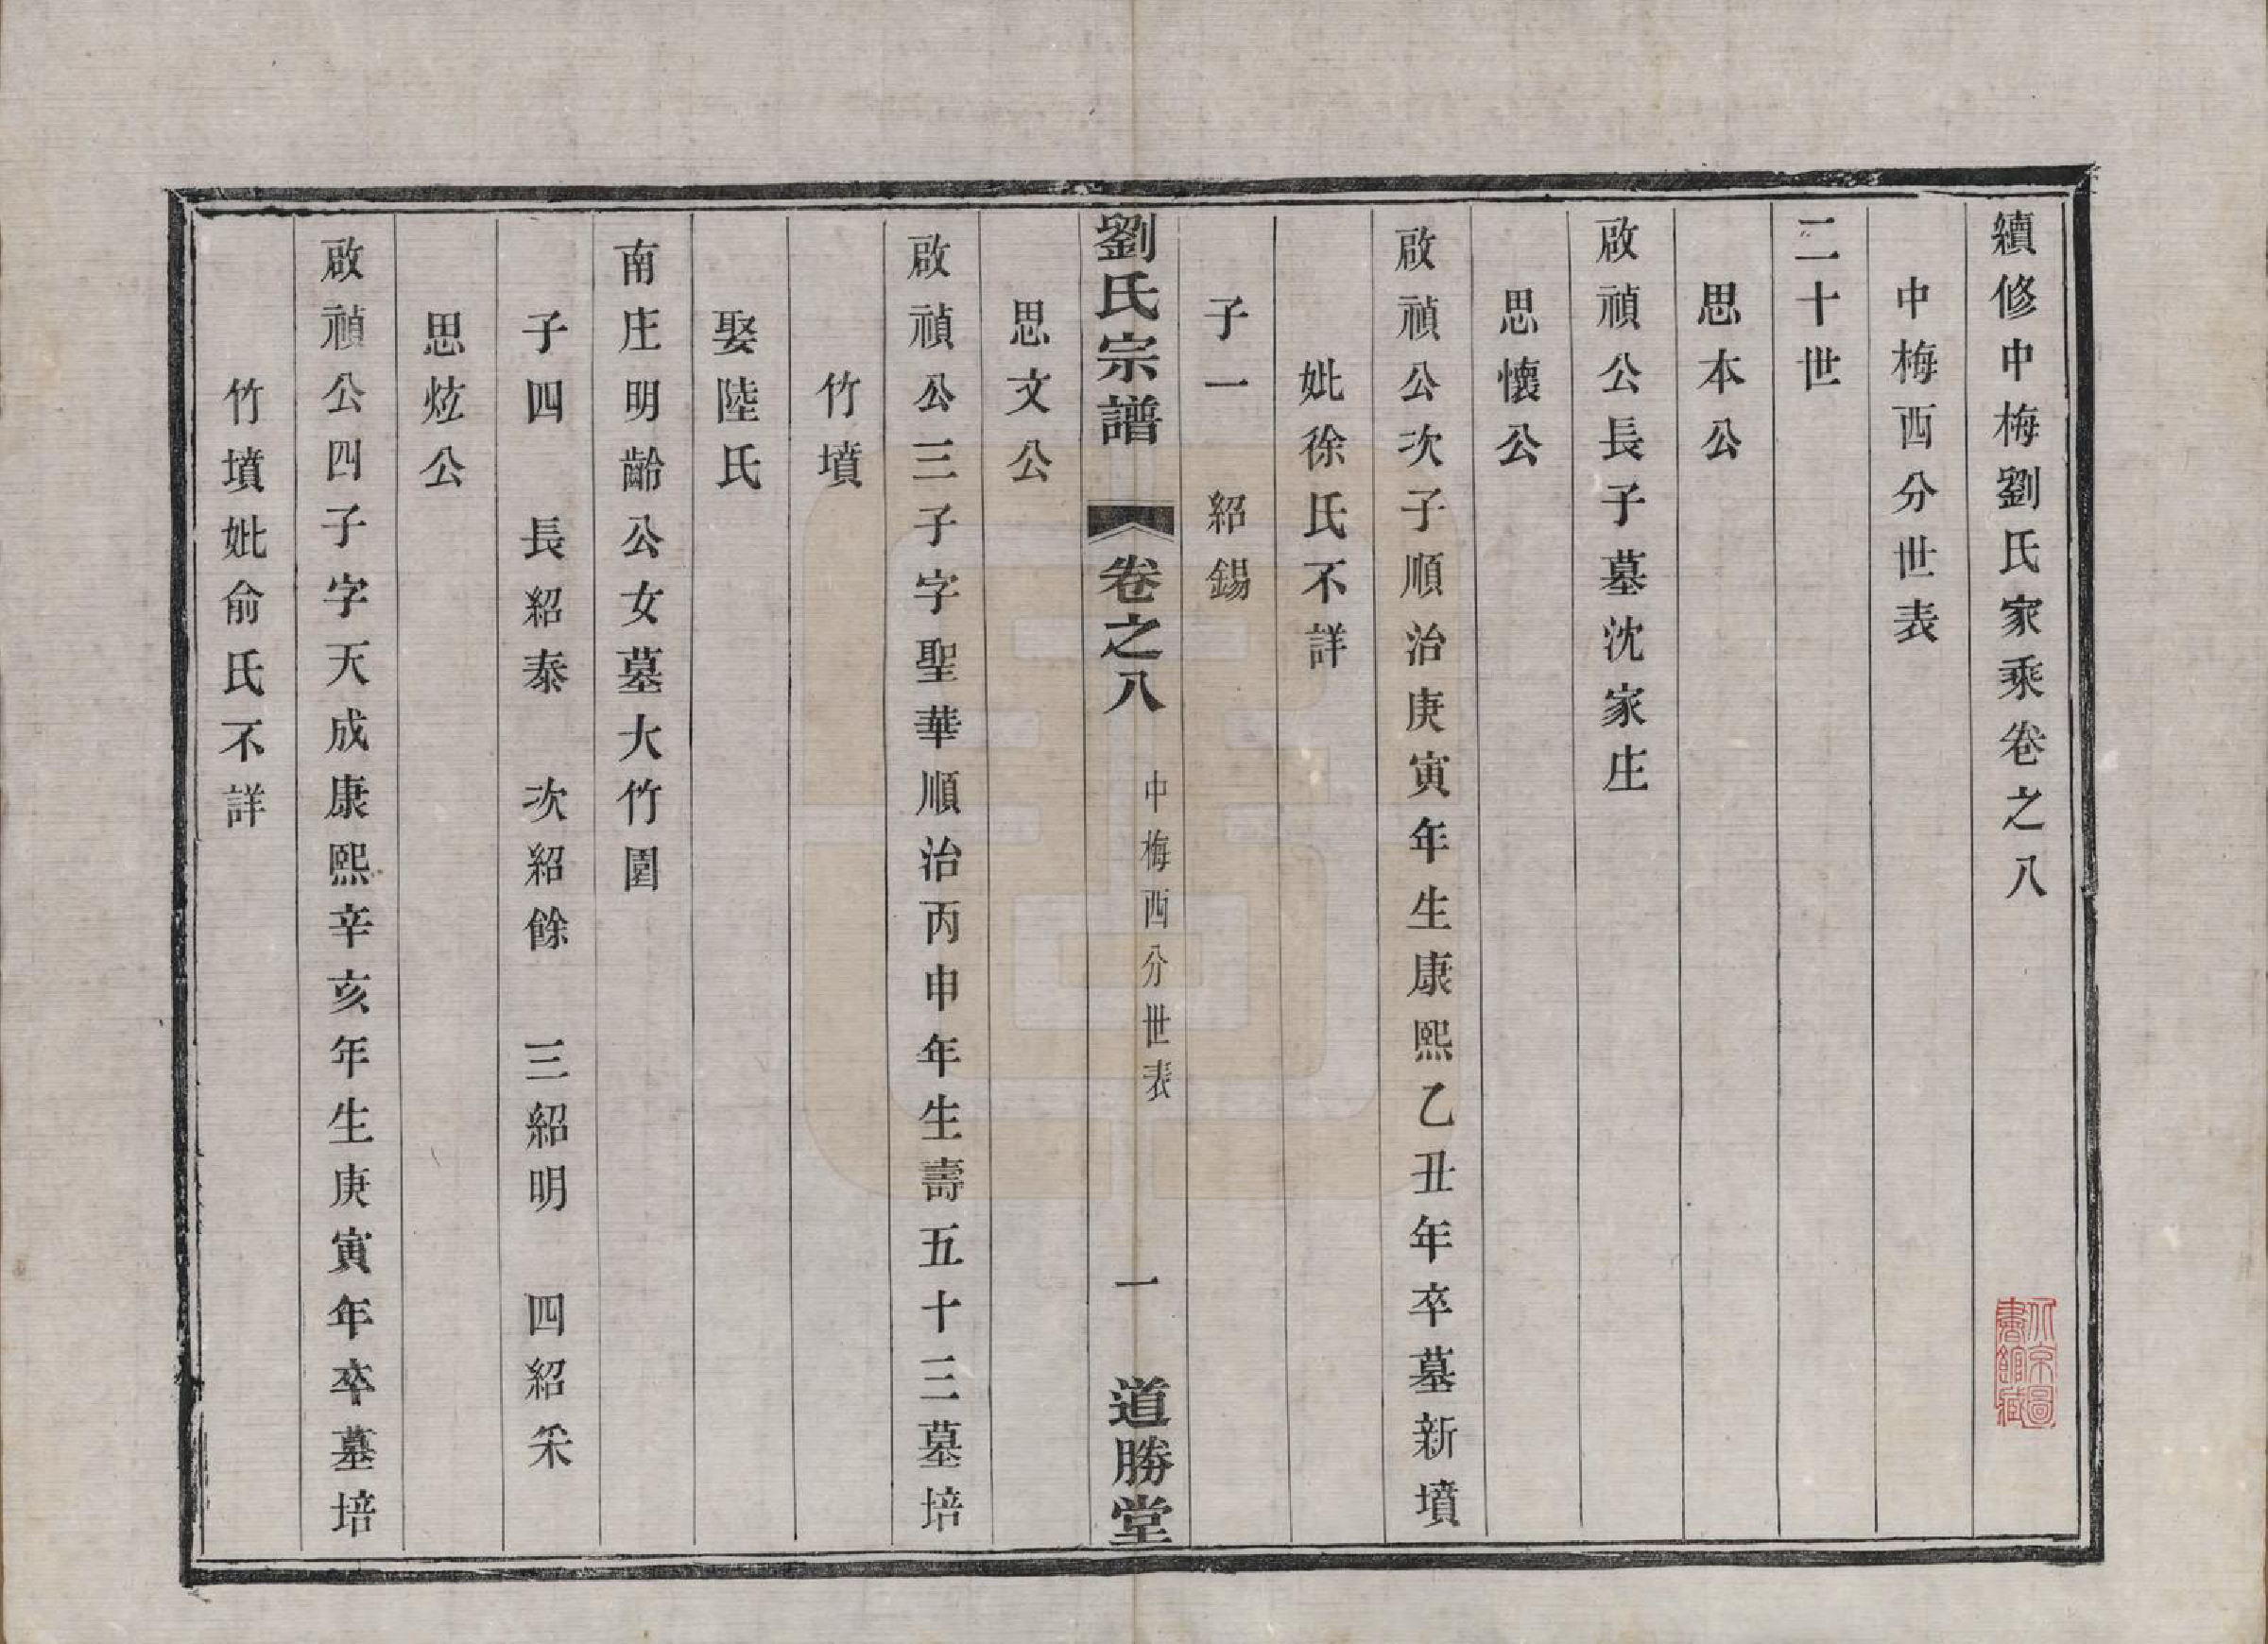 續修中梅劉氏家乘卷之八
中梅西分世表
二十世
思本公
啟禎公長子墓沈家庄
思懷公
啟禎公次子順治庚寅年生康熙乙丑年卒墓新墳
妣徐氏不詳
子一　紹錫
劉氏宗譜　卷之八　中梅西分世表　一　道勝堂
思文公
啟禎公三子字聖華順治丙申年生壽五十三墓培
竹墳
娶陸氏
南庄明齡公女墓大竹園
子四　長紹泰　次紹餘　三紹明　四紹采
思炫公
啟禎公四子字天成康熙辛亥年生庚寅年卒墓培
竹墳妣俞氏不詳
北京圖書館藏